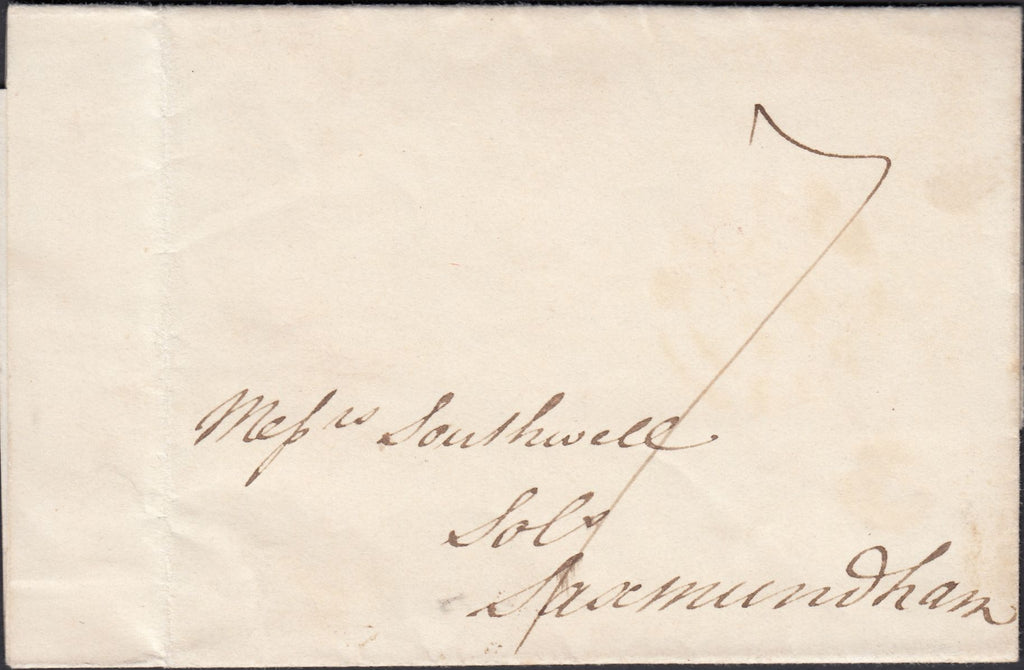 7
Meſsrs Southwell
Sols
Saxmundham